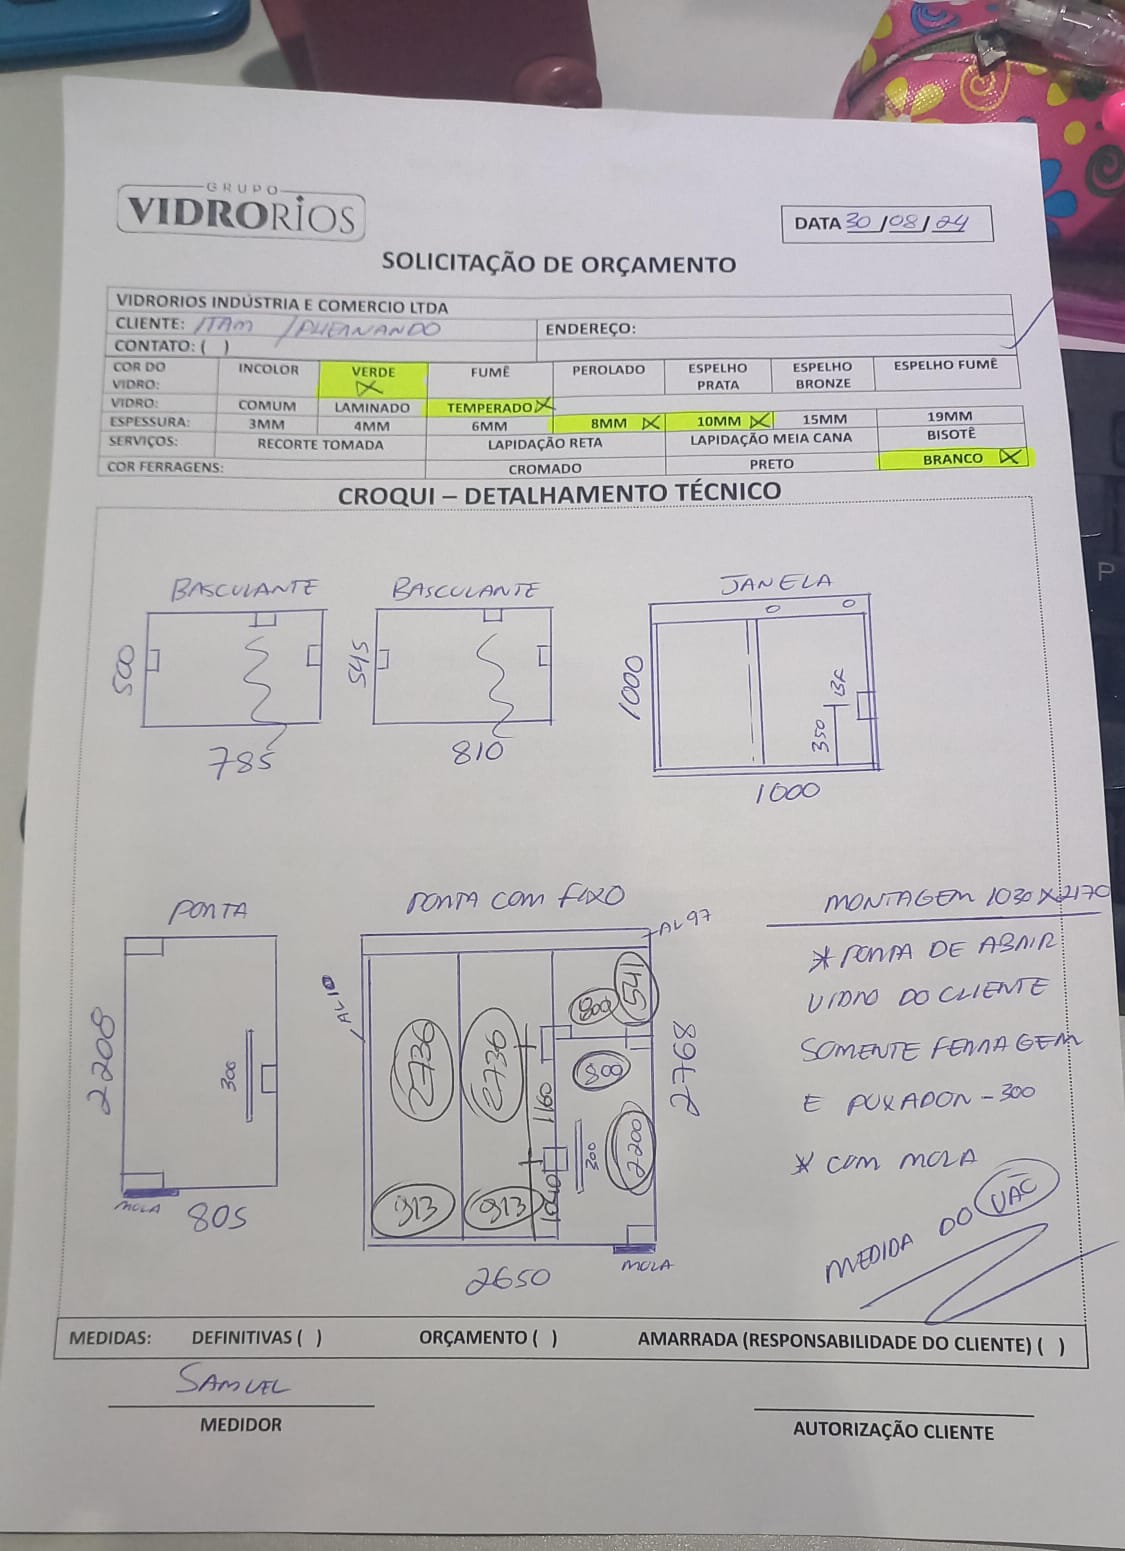 GRUPO
VIDRORIOS
DATA 30/08/24
SOLICITAÇÃO DE ORÇAMENTO
VIDRORIOS INDÚSTRIA E COMERCIO LTDA
CLIENTE: ITAM / PHERNANDO
ENDEREÇO:
CONTATO: ( )
COR DO VIDRO: INCOLOR VERDE X FUMÊ PEROLADO ESPELHO PRATA ESPELHO BRONZE ESPELHO FUMÊ
VIDRO: COMUM LAMINADO TEMPERADO X
ESPESSURA: 3MM 4MM 6MM 8MM X 10MM X 15MM 19MM
SERVIÇOS: RECORTE TOMADA LAPIDAÇÃO RETA LAPIDAÇÃO MEIA CANA BISOTÊ
COR FERRAGENS: CROMADO PRETO BRANCO X
CROQUI – DETALHAMENTO TÉCNICO
BASCULANTE
500
785
BASCULANTE
545
810
JANELA
1000
350
1000
PORTA
2208
300
MOLA
805
PORTA COM FIXO
AL 97
AL 10
2736
2736
800
541
800
1160
1040
300
2200
913
913
2768
2650
MOLA
MONTAGEM 1030 X 2170
* PORTA DE ABRIR
VIDRO DO CLIENTE
SOMENTE FERRAGEM
E PUXADOR - 300
* COM MOLA
MEDIDA DO VÃO
MEDIDAS: DEFINITIVAS ( ) ORÇAMENTO ( ) AMARRADA (RESPONSABILIDADE DO CLIENTE) ( )
SAMUEL
MEDIDOR
AUTORIZAÇÃO CLIENTE
P